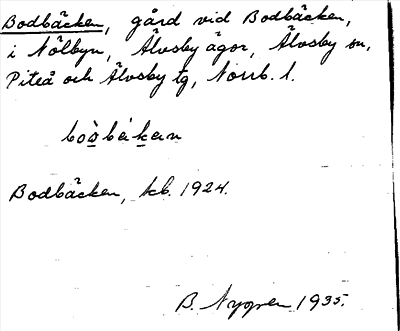 Bodbäcken, gård vid Bodbäcken,
i Nölbyn, Älvsby ägor, Älvsby sn,
Piteå och Älvsby tg, Norrb. l.
Bodbäcken, kb. 1924.
B. Nygren 1935.